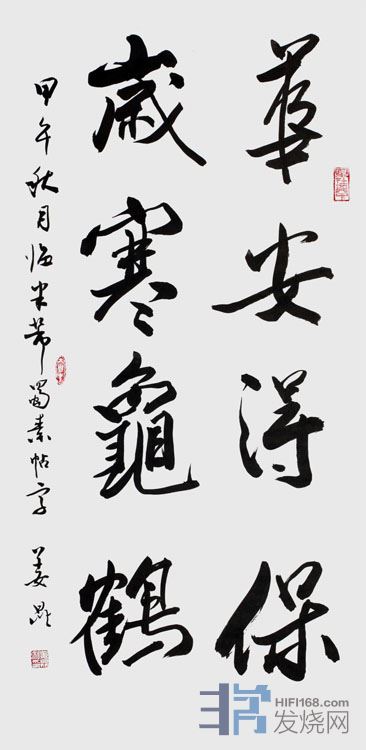 華安得保
歲寒龜鶴
甲午秋月临米芾蜀素帖字
姜
HIFI168.com
发烧网